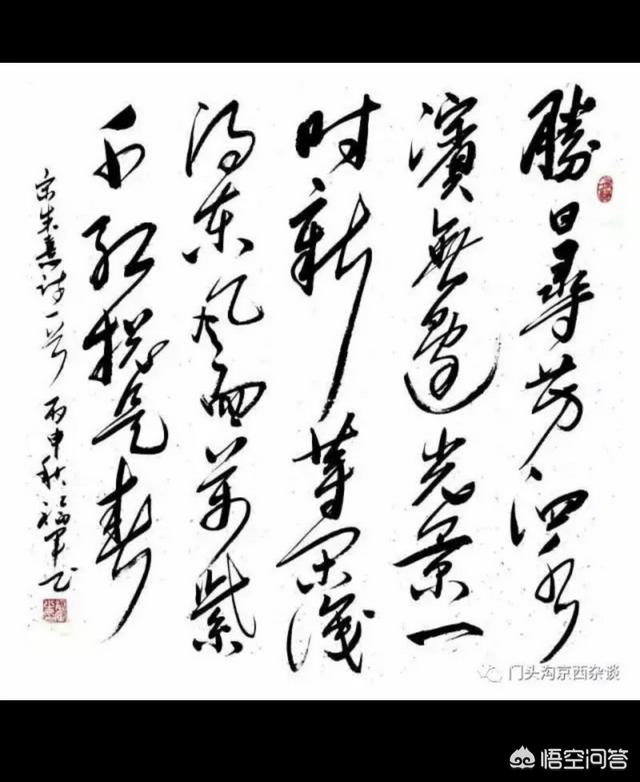 勝日尋芳泗水
濱無邊光景一
时新等闲識
得东风面萬紫
千红總是春
宋朱熹诗一首 丙申秋 福军书
门头沟京西杂谈
悟空问答